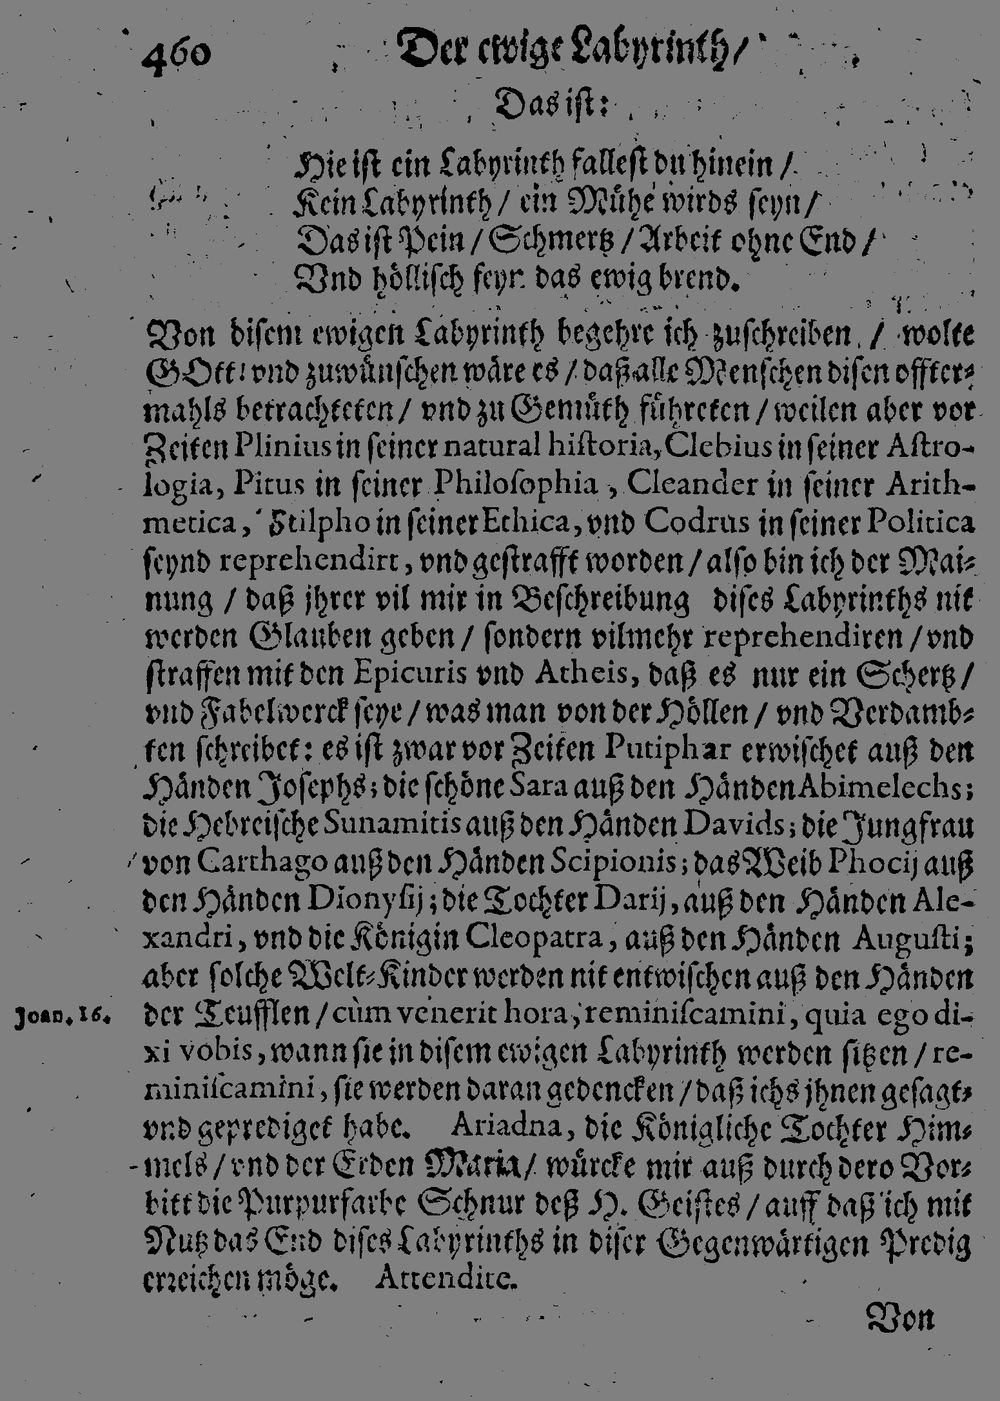 460 Der ewige Labyrinth/
Das ist:
Hie ist ein Labyrinth fallest du hinein /
Kein Labyrinth / ein Mühe wirds seyn /
Das ist Pein / Schmertz / Arbeit ohne End /
Vnd höllisch feyr das ewig brend.
Von disem ewigen Labyrinth begehre ich zuschreiben / wolte
GOtt! vnd zuwünschen wäre es / daß alle Menschen disen offter-
mahls betrachteten / vnd zu Gemüth führeten / weilen aber vor
Zeiten Plinius in seiner natural historia, Clebius in seiner Astro-
logia, Pitus in seiner Philosophia, Cleander in seiner Arith-
metica, Stilpho in seiner Ethica, vnd Codrus in seiner Politica
seynd reprehendirt, vnd gestrafft worden / also bin ich der Mai-
nung / daß jhrer vil mir in Beschreibung dises Labyrinths nit
werden Glauben geben / sondern vilmehr reprehendiren / vnd
straffen mit den Epicuris vnd Atheis, daß es nur ein Schertz /
vnd Fabelwerck seye / was man von der Höllen / vnd Verdamb-
ten schreibet: es ist zwar vor Zeiten Putiphar erwischet auß den
Händen Josephs; die schöne Sara auß den Händen Abimelechs;
die Hebreische Sunamitis auß den Händen Davids; die Jungfrau
von Carthago auß den Händen Scipionis; das Weib Phocij auß
den Händen Dionysij; die Tochter Darij, auß den Händen Ale-
xandri, vnd die Königin Cleopatra, auß den Händen Augusti;
aber solche Welt-Kinder werden nit entwischen auß den Händen
Joan. 16. der Teufflen / cùm venerit hora, reminiscamini, quia ego di-
xi vobis, wann sie in disem ewigen Labyrinth werden sitzen / re-
miniscamini, sie werden daran gedencken / daß ichs jhnen gesagt-
vnd geprediget habe. Ariadna, die Königliche Tochter Him-
mels / vnd der Erden Maria / würcke mir auß durch dero Vor-
bitt die Purpurfarbe Schnur deß H. Geistes / auff daß ich mit
Nutz das End dises Labyrinths in diser Gegenwärtigen Predig
erreichen möge. Attendite.
Von